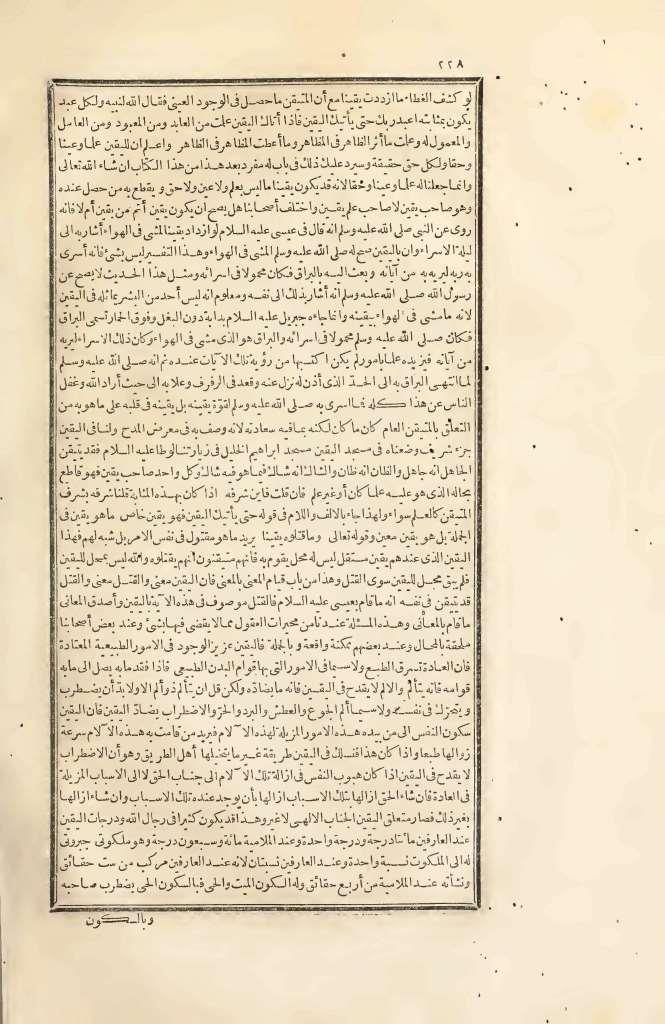 ٢٢٨
لو كشف الغطاء ما ازددت يقينا مع أن المتيقن ما حصل فى الوجود العينى فقال الله لنبيه ولكل عبد
يكون بمثابته اعبد ربك حتى يأتيك اليقين فاذا أتاك اليقين علمت من العابد ومن المعبود ومن العامل
والمعمول له وعلمت ما أثر الظاهر فى المظاهر وما أعطت المظاهر فى الظاهر واعلم ان لليقين علما وعينا
وحقا ولكل حق حقيقة وسيرد عليك ذلك فى باب له مفرد بعد هذا من هذا الكتاب ان شاء الله تعالى
وانما جعلنا له علما وعينا وحقا لانه قد يكون يقينا ما ليس بعلم ولا عين ولا حق ويقطع به من حصل عنده
وهو صاحب يقين لا صاحب علم يقين واختلف أصحابنا هل يصح ان يكون يقين أتم من يقين أم لا فانه
روى عن النبى صلى الله عليه وسلم انه قال فى عيسى عليه السلام لو ازداد يقينا لمشى فى الهواء أشار به الى
ليلة الاسراء وان باليقين صح له صلى الله عليه وسلم المشى فى الهواء وهذا التفسير ليس بشئ فانه أسرى
به ربه ليريه به من آياته وبعث اليه بالبراق فكان محمولا فى اسرائه ومثل هذا الحديث لا يصح عن
رسول الله صلى الله عليه وسلم أنه أشار بذلك الى نفسه ومعلوم انه ليس أحد من البشر يماثله فى اليقين
لانه ما مشى فى الهواء بيقينه وانما جاءه جبريل عليه السلام بدابة دون البغل وفوق الحمار تسمى البراق
فكان صلى الله عليه وسلم محمولا فى اسرائه والبراق هو الذى مشى فى الهواء وكان ذلك الاسراء ليريه
من آياته فيزيده علما بامور لم يكن اكتسبها من رؤية تلك الآيات عنده ثم انه صلى الله عليه وسلم
لما انتهى البراق به الى الحد الذى أذن له نزل عنه وقعد فى الرفرف وعلا به الى حيث أراد الله وغفل
الناس عن هذا كله فما اسرى به صلى الله عليه وسلم لقوة يقينه بل يقينه فى قلبه على ما هو به من
التعلق بالمتيقن العام كان ما كان لكنه بما فيه سعادته لانه وصف به فى معرض المدح ولنا فى اليقين
جزء شريف وضعناه فى مسجد اليقين مسجد ابراهيم الخليل فى زيارتنا لوطا عليه السلام فقد يتيقن
الجاهل انه جاهل والظان انه ظان والشاك انه شاك فيما هو فيه شاك وكل واحد صاحب يقين فهو قاطع
بحاله الذى هو عليه علما كان أو غير علم فان قلت فاين شرفه اذا كان بهذه المثابة قلنا شرفه بشرف
المتيقن كالعلم سواء ولهذا جاء بالالف واللام فى قوله حتى يأتيك اليقين فهو يقين خاص ما هو يقين فى
الجملة بل هو يقين معين وقوله تعالى وما قتلوه يقينا يريد ما هو مقتول فى نفس الامر بل شبه لهم فهذا
اليقين الذى عندهم يقين مستقل ليس له محل يقوم به فانهم متيقنون انهم يقتلوه والله ليس بمحل لليقين
فلم يبق محل لليقين سوى القتل وهذا من باب قيام المعنى بالمعنى فان اليقين معنى والقتل معنى والقتل
قد تيقن فى نفسه انه ما قام بعيسى عليه السلام فالقتل موصوف فى هذه الآية باليقين وأصدق المعانى
ما قام بالمعانى وهذه المسئلة عندنا من محيرات العقول مما لا يقضى فيها بشئ وعند بعض أصحابنا
ملحقة بالمحال وعند بعضهم ممكنة واقعة وبالجملة فاليقين عزيز الوجود فى الامور الطبيعية المعتادة
فان العادة تسرق الطبع ولا سيما فى الامور التى بها قوام البدن الطبيعى فاذا فقد ما به يصل الى ما به
قوامه فانه يتألم والالم لا يقدح فى اليقين فانه ما يضاده ولكن قل ان يتألم ذو ألم الا ولا بد أن يضطرب
ويتحرك فى نفسه ولا سيما ألم الجوع والعطش والبرد والحر والاضطراب يضاد اليقين فان اليقين
سكون النفس الى من بيده هذه الامور المزيلة لهذه الآلام فيريد من قامت به هذه الآلام سرعة
زوالها طبعا واذا كان هذا فنسلك فى اليقين طريقة غير ما يتخيلها أهل الطريق وهو أن الاضطراب
لا يقدح فى اليقين اذا كان هبوب النفس فى ازالة تلك الآلام الى جناب الحق لا الى الاسباب المزيلة
فى العادة فان شاء الحق ازالها بتلك الاسباب ازالها بأن يوجد عنده تلك الاسباب وان شاء ازالها
بغير ذلك فصار متعلق اليقين الجناب الالهى لا غير وهذا قد يكون كثيرا فى رجال الله ودرجات اليقين
عند العارفين مائتا درجة ودرجة واحدة وعند الملامية مائة وسبعون درجة وهو ملكوتى جبروتى
له الى الملكوت نسبة واحدة وعند العارفين نسبتان لانه عند العارفين مركب من ست حقائق
ونشأته عند الملامية من أربع حقائق وله السكون الميت والحى فبالسكون الحى يضطرب صاحبه
وبالسكون